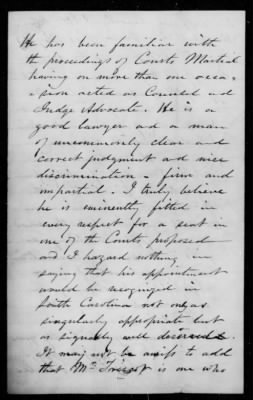 He has been familiar with
the proceedings of Courts Martial
having on more than one occa-
sion acted as Counsel and
Judge Advocate. He is a
good lawyer and a man
of uncommonly clear and
correct judgment and nice
discrimination - firm and
impartial. I truly believe
he is eminently fitted in
every respect for a seat in
one of the Courts proposed
and I hazard nothing in
saying that his appointment
would be recognized in
South Carolina not only as
singularly appropriate but
as signally well deserved.
It may not be amiss to add
that Mr. is one who